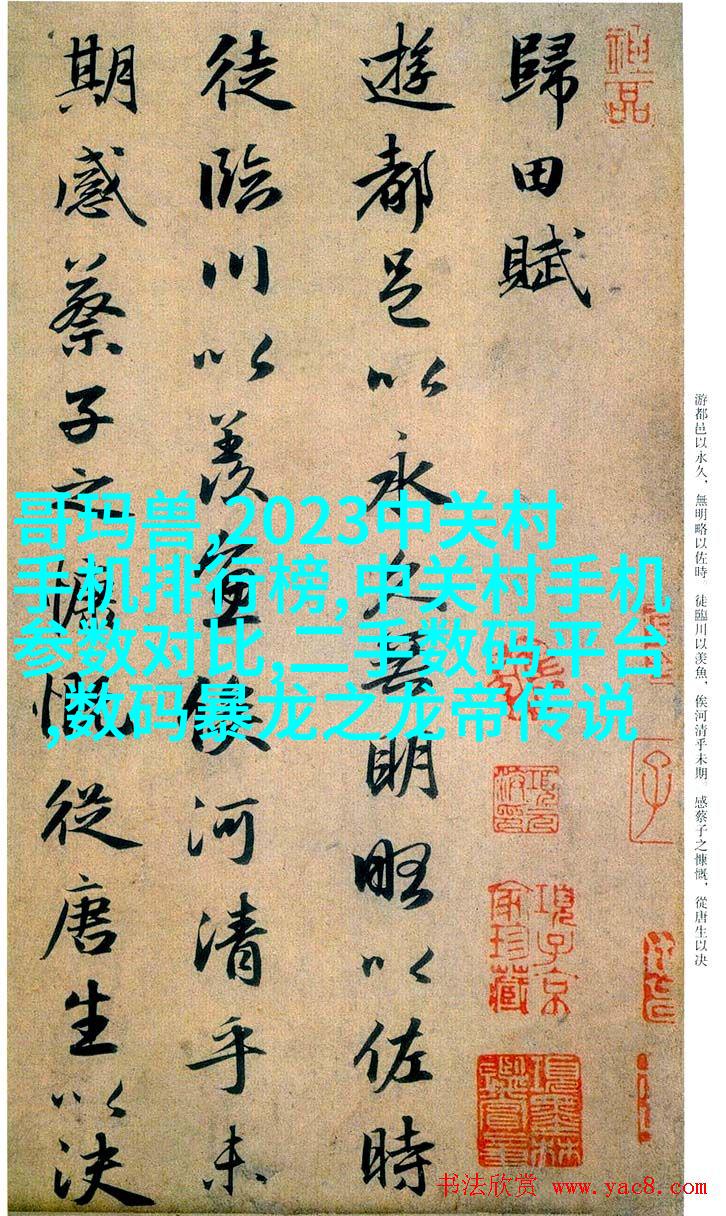 歸田賦
遊都邑以永久無明略以佐時
徒臨川以羨魚俟河清乎未
期感蔡子之慷慨從唐生以決
神品
子
項子京家珍藏
項墨林鑑賞章
哥玛兽,2023中关村
手机排行榜,中关村手机
参数对比,二手数码平台
,数码暴龙之龙帝传说
游都邑以永久，無明略以佐時。徒臨川以羨魚，俟河清乎未期。感蔡子之慷慨，從唐生以决
书法欣赏 www.yac8.com